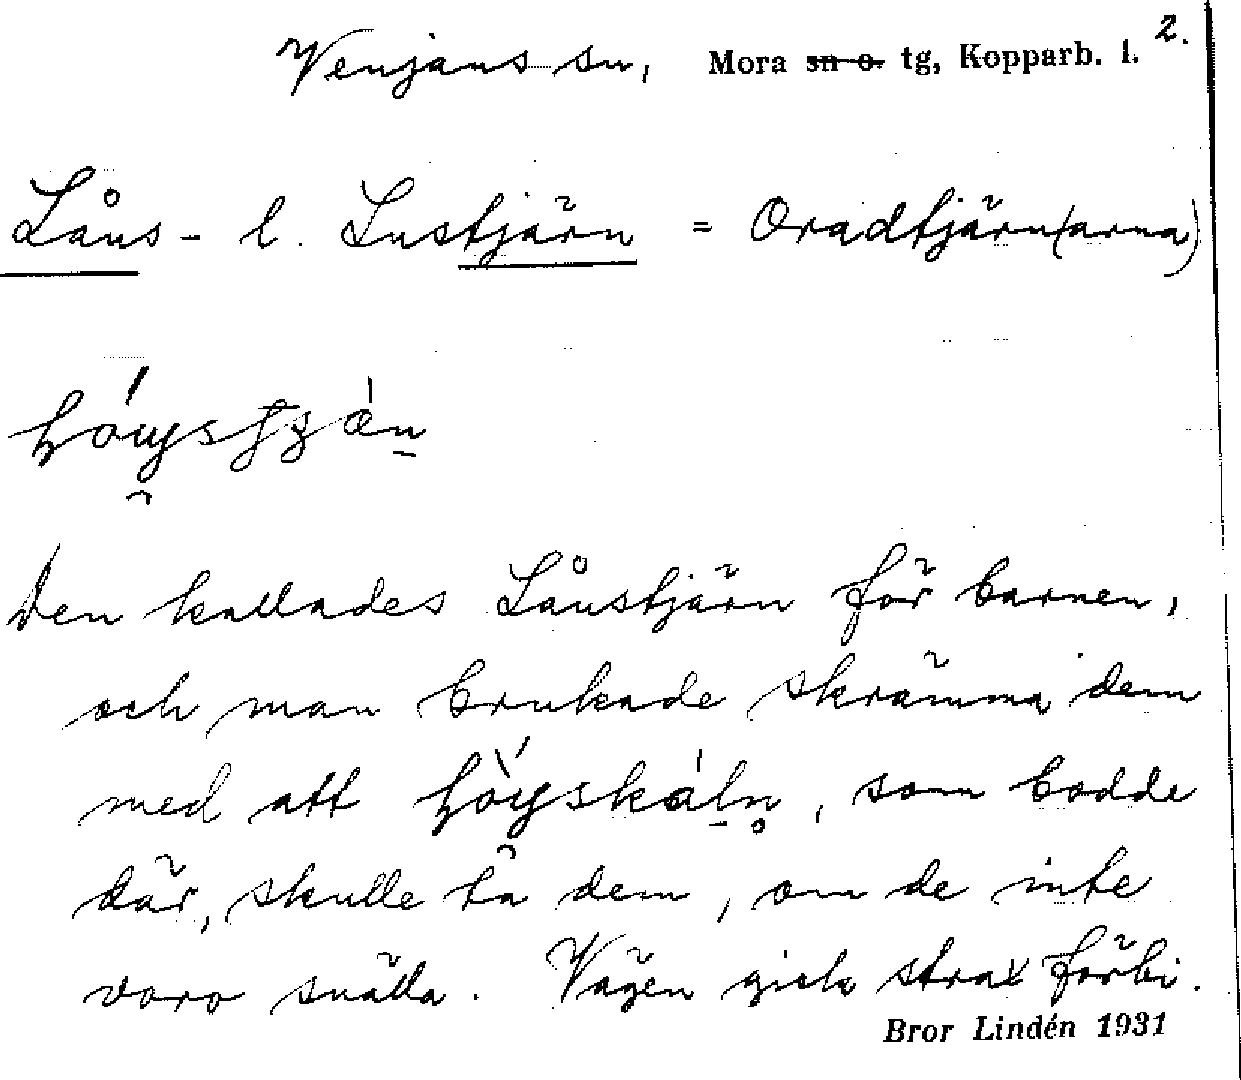 Venjans sn, Mora sn o. tg, Kopparb. l. 2.
Låus- l. Lustjärn = Oradtjärn(arna)
Den kallades Låustjärn för barnen,
och man brukade skrämma dem
med att , som bodde
där, skulle ta dem, om de inte
voro snälla. Vägen gick strax förbi.
Bror Lindén 1931